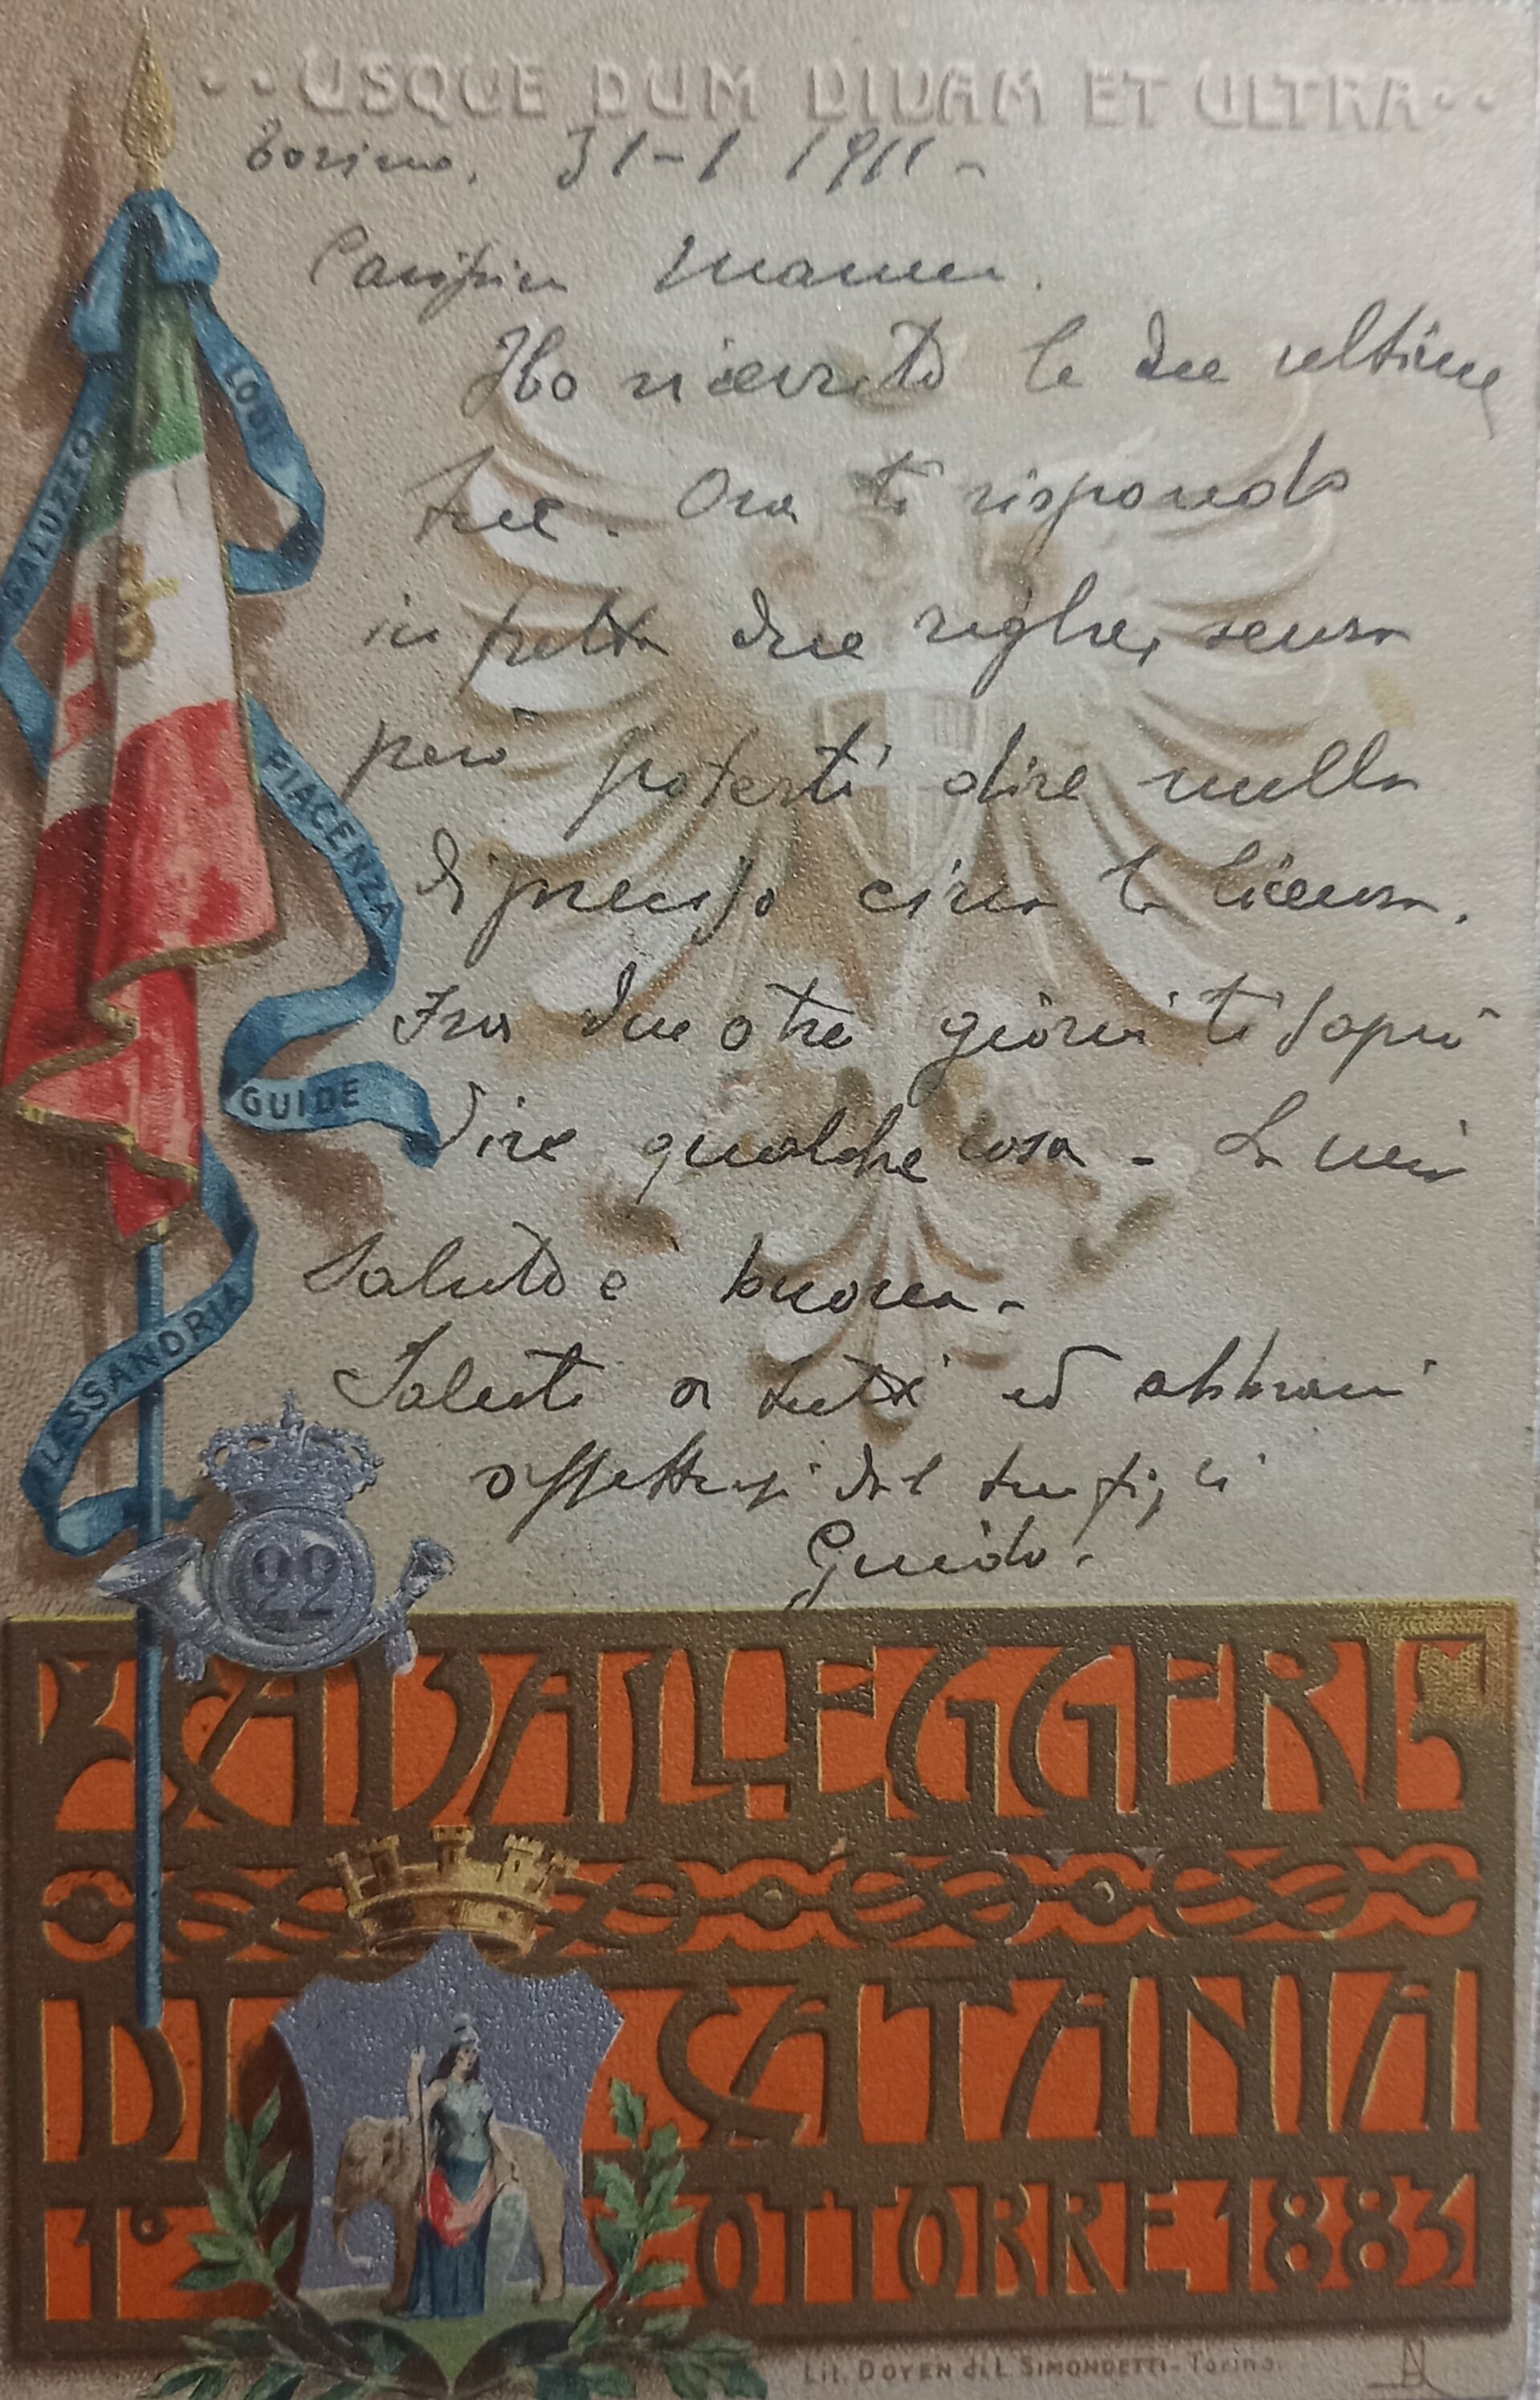 ·· USQUE DUM VIVAM ET ULTRA ··
Torino, 31-1 1911-
Carissima Mamma.
Ho ricevuto le due ultime
tue. Ora ti rispondo
in fretta due righe, senza
però poterti dire nulla
di preciso circa la licenza.
Fra due o tre giorni ti saprò
dire qualche cosa - La mia
salute è buona-
Saluti a tutti ed abbracci
affettuosi dal tuo
Guido.
LODI
SALUZZO
PIACENZA
GUIDE
ALESSANDRIA
22
CAVALLEGGERI
DI CATANIA
1° OTTOBRE 1883
Lit. DOYEN di L. SIMONDETTI - Torino.